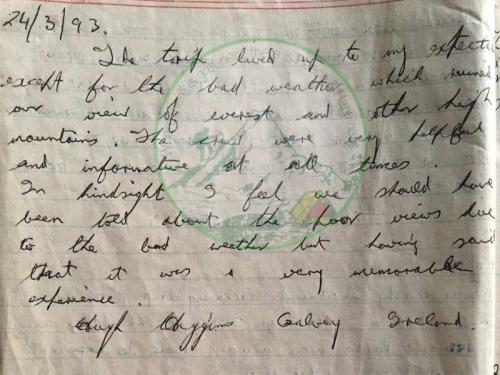 24/3/93.
The trip lived up to my expectat
except for the bad weather which ruined
our view of everest and other high
mountains. The crew were very helpful
and informative at all times.
In hindsight I feel we should have
been told about the poor views due
to the bad weather but having said
that it was a very memorable
experience.
Hugh Galway Ireland.